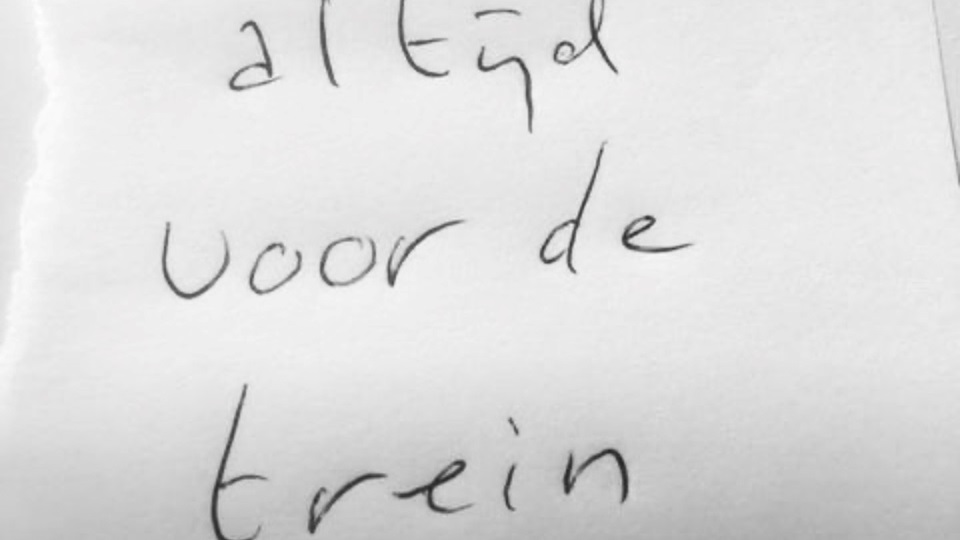 altijd
voor de
trein